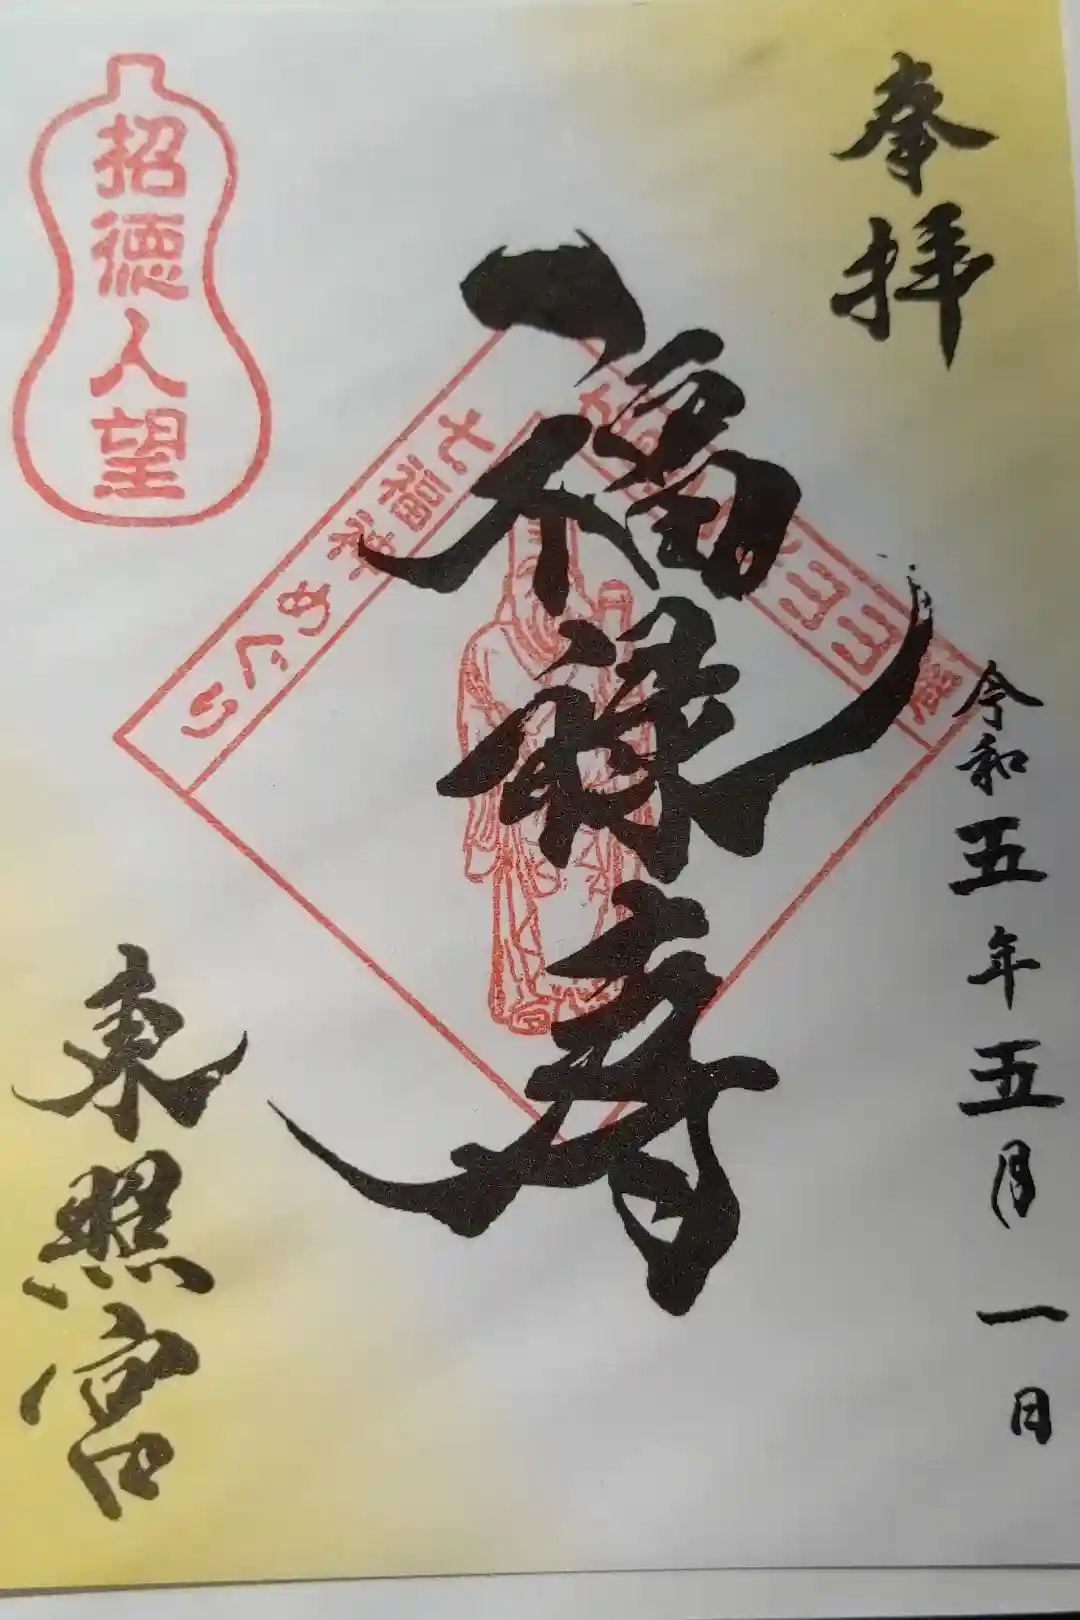 奉拝
令和五年五月一日
福禄寿
七福神めぐり
招徳人望
東照宮